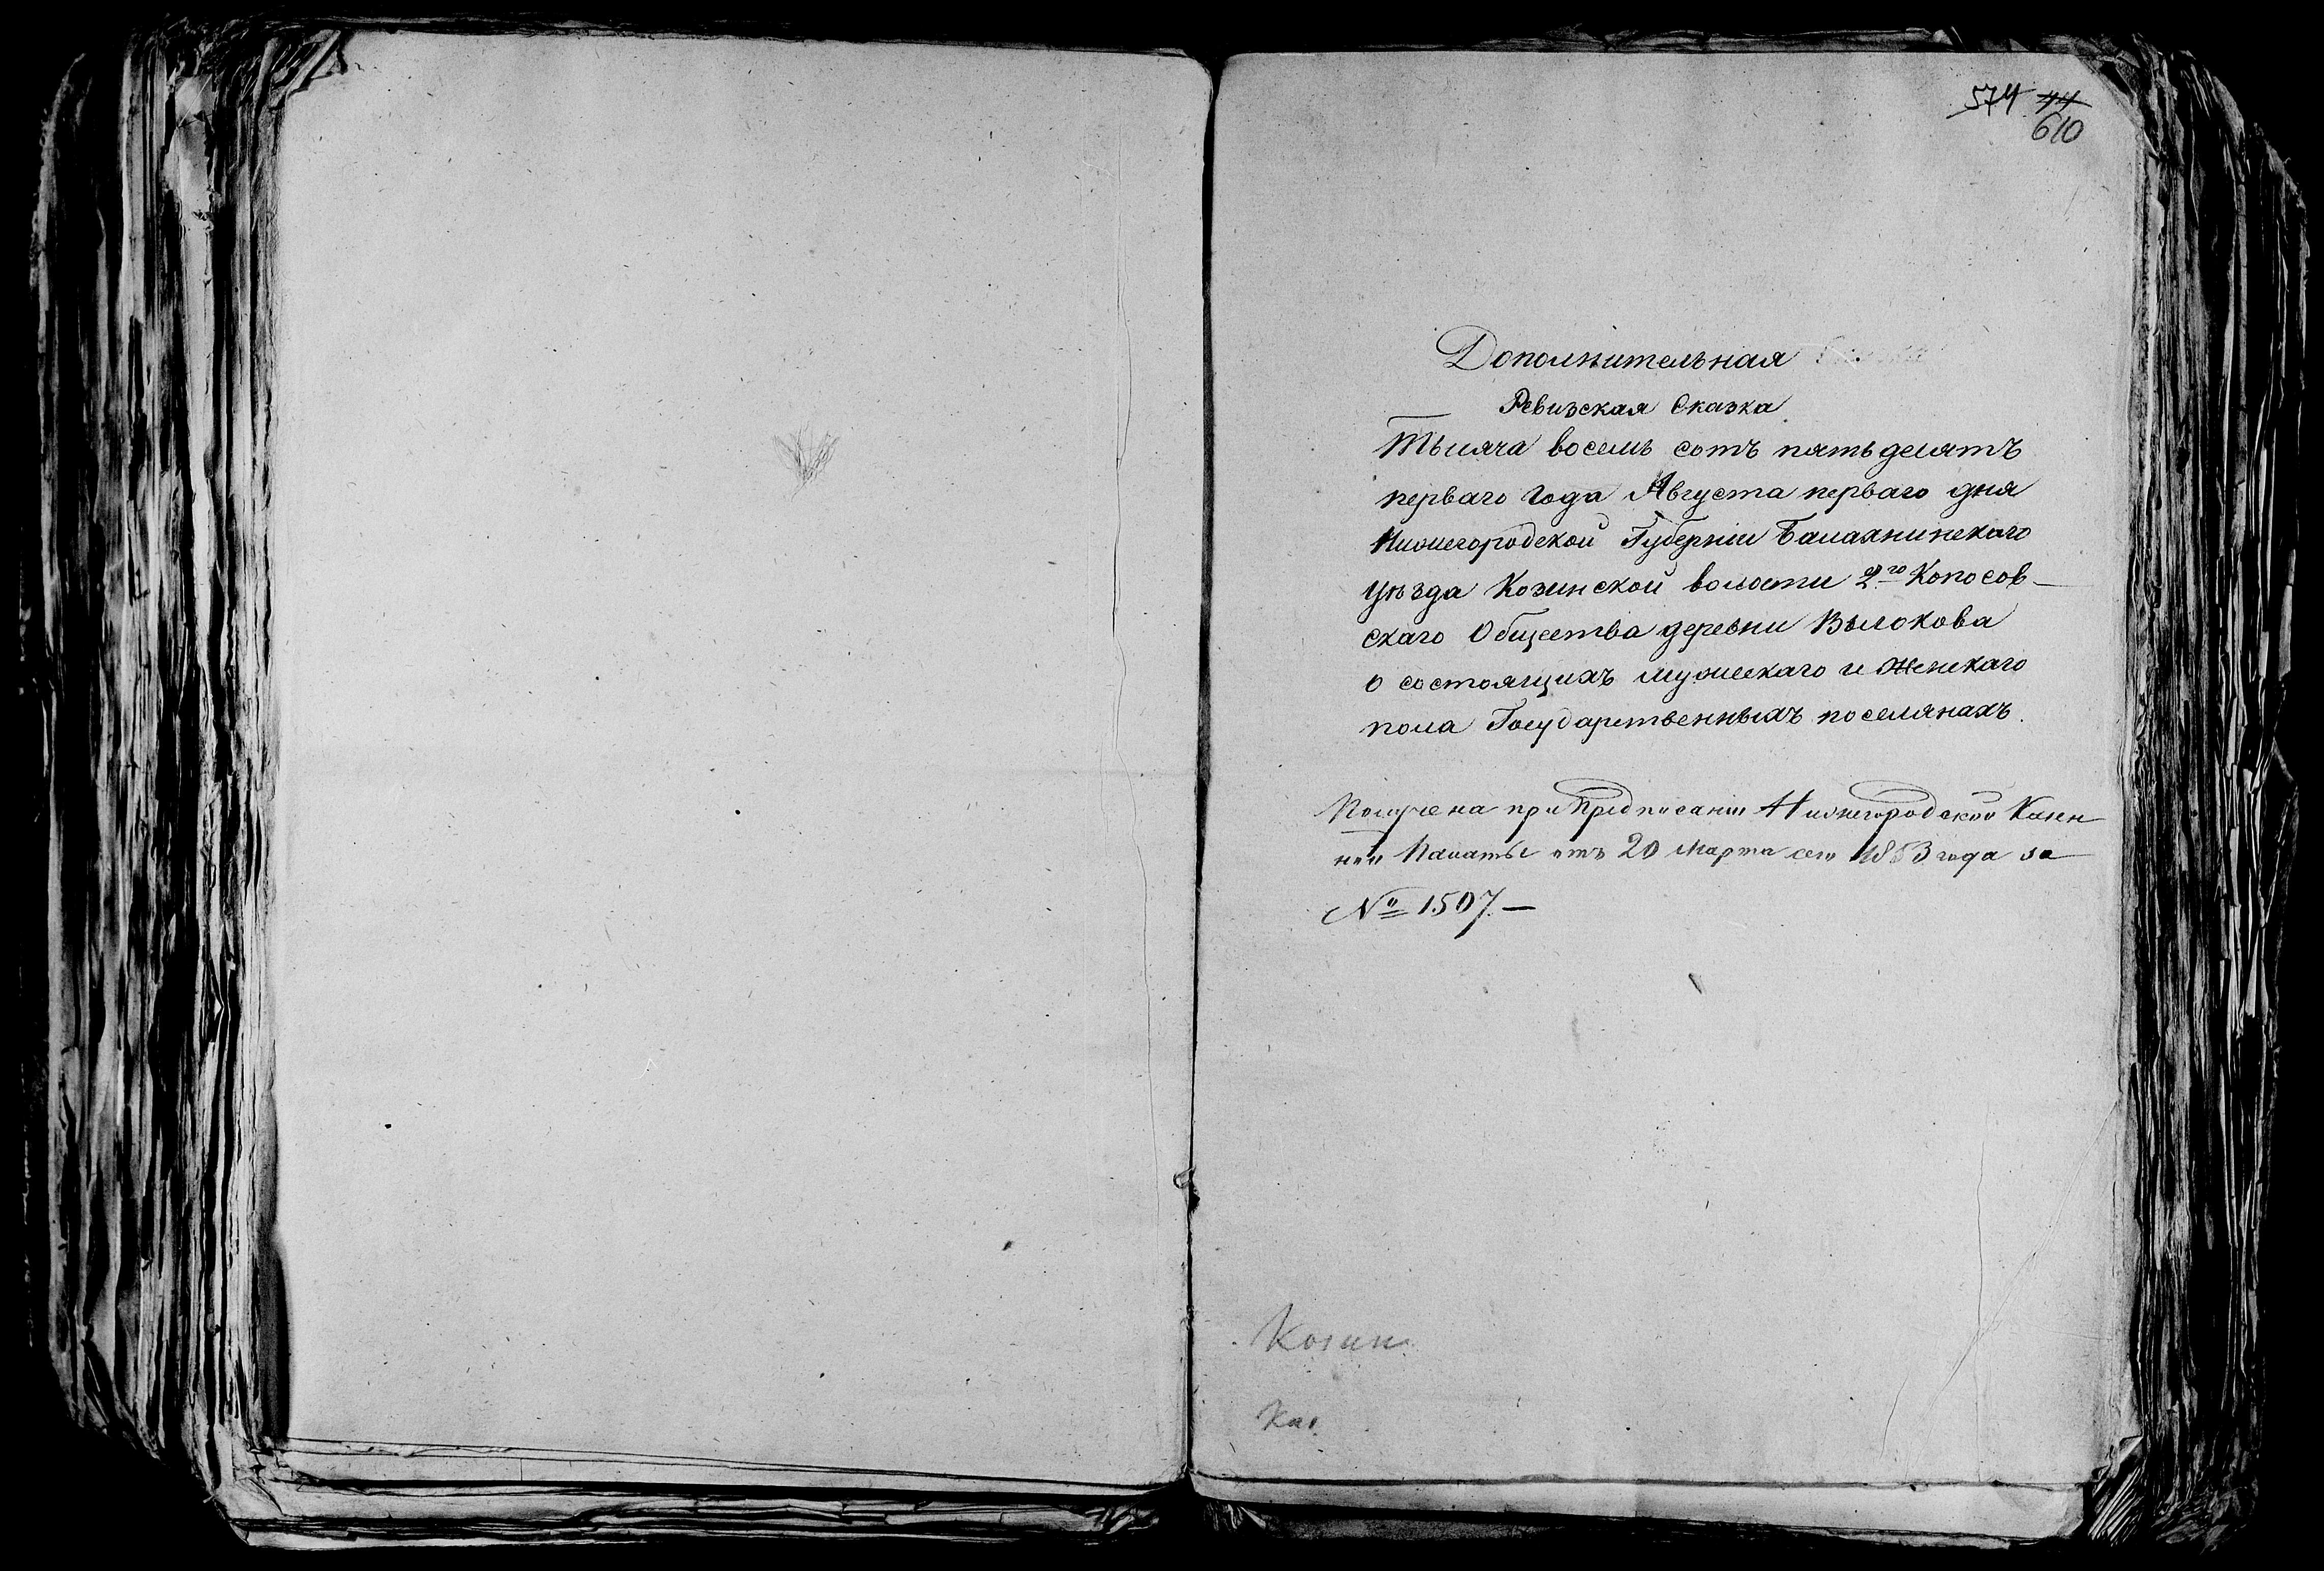 574 44
610
Дополнительная
Ревизская Сказка
Тысяча восемь сотъ пятьдесятъ
перваго года Августа перваго дня
Нижегородской Губерніи Балахнинскаго
уѣзда Козинской волости 2го Копосов-
скаго Общества деревни Высокова
о состоящихъ мужескаго и женскаго
пола Государственныхъ поселянахъ.
Получена при предписаніи Нижегородской Казен
ной Палаты отъ 20 Марта сего 1853 года за
№ 1507. —
Козин.